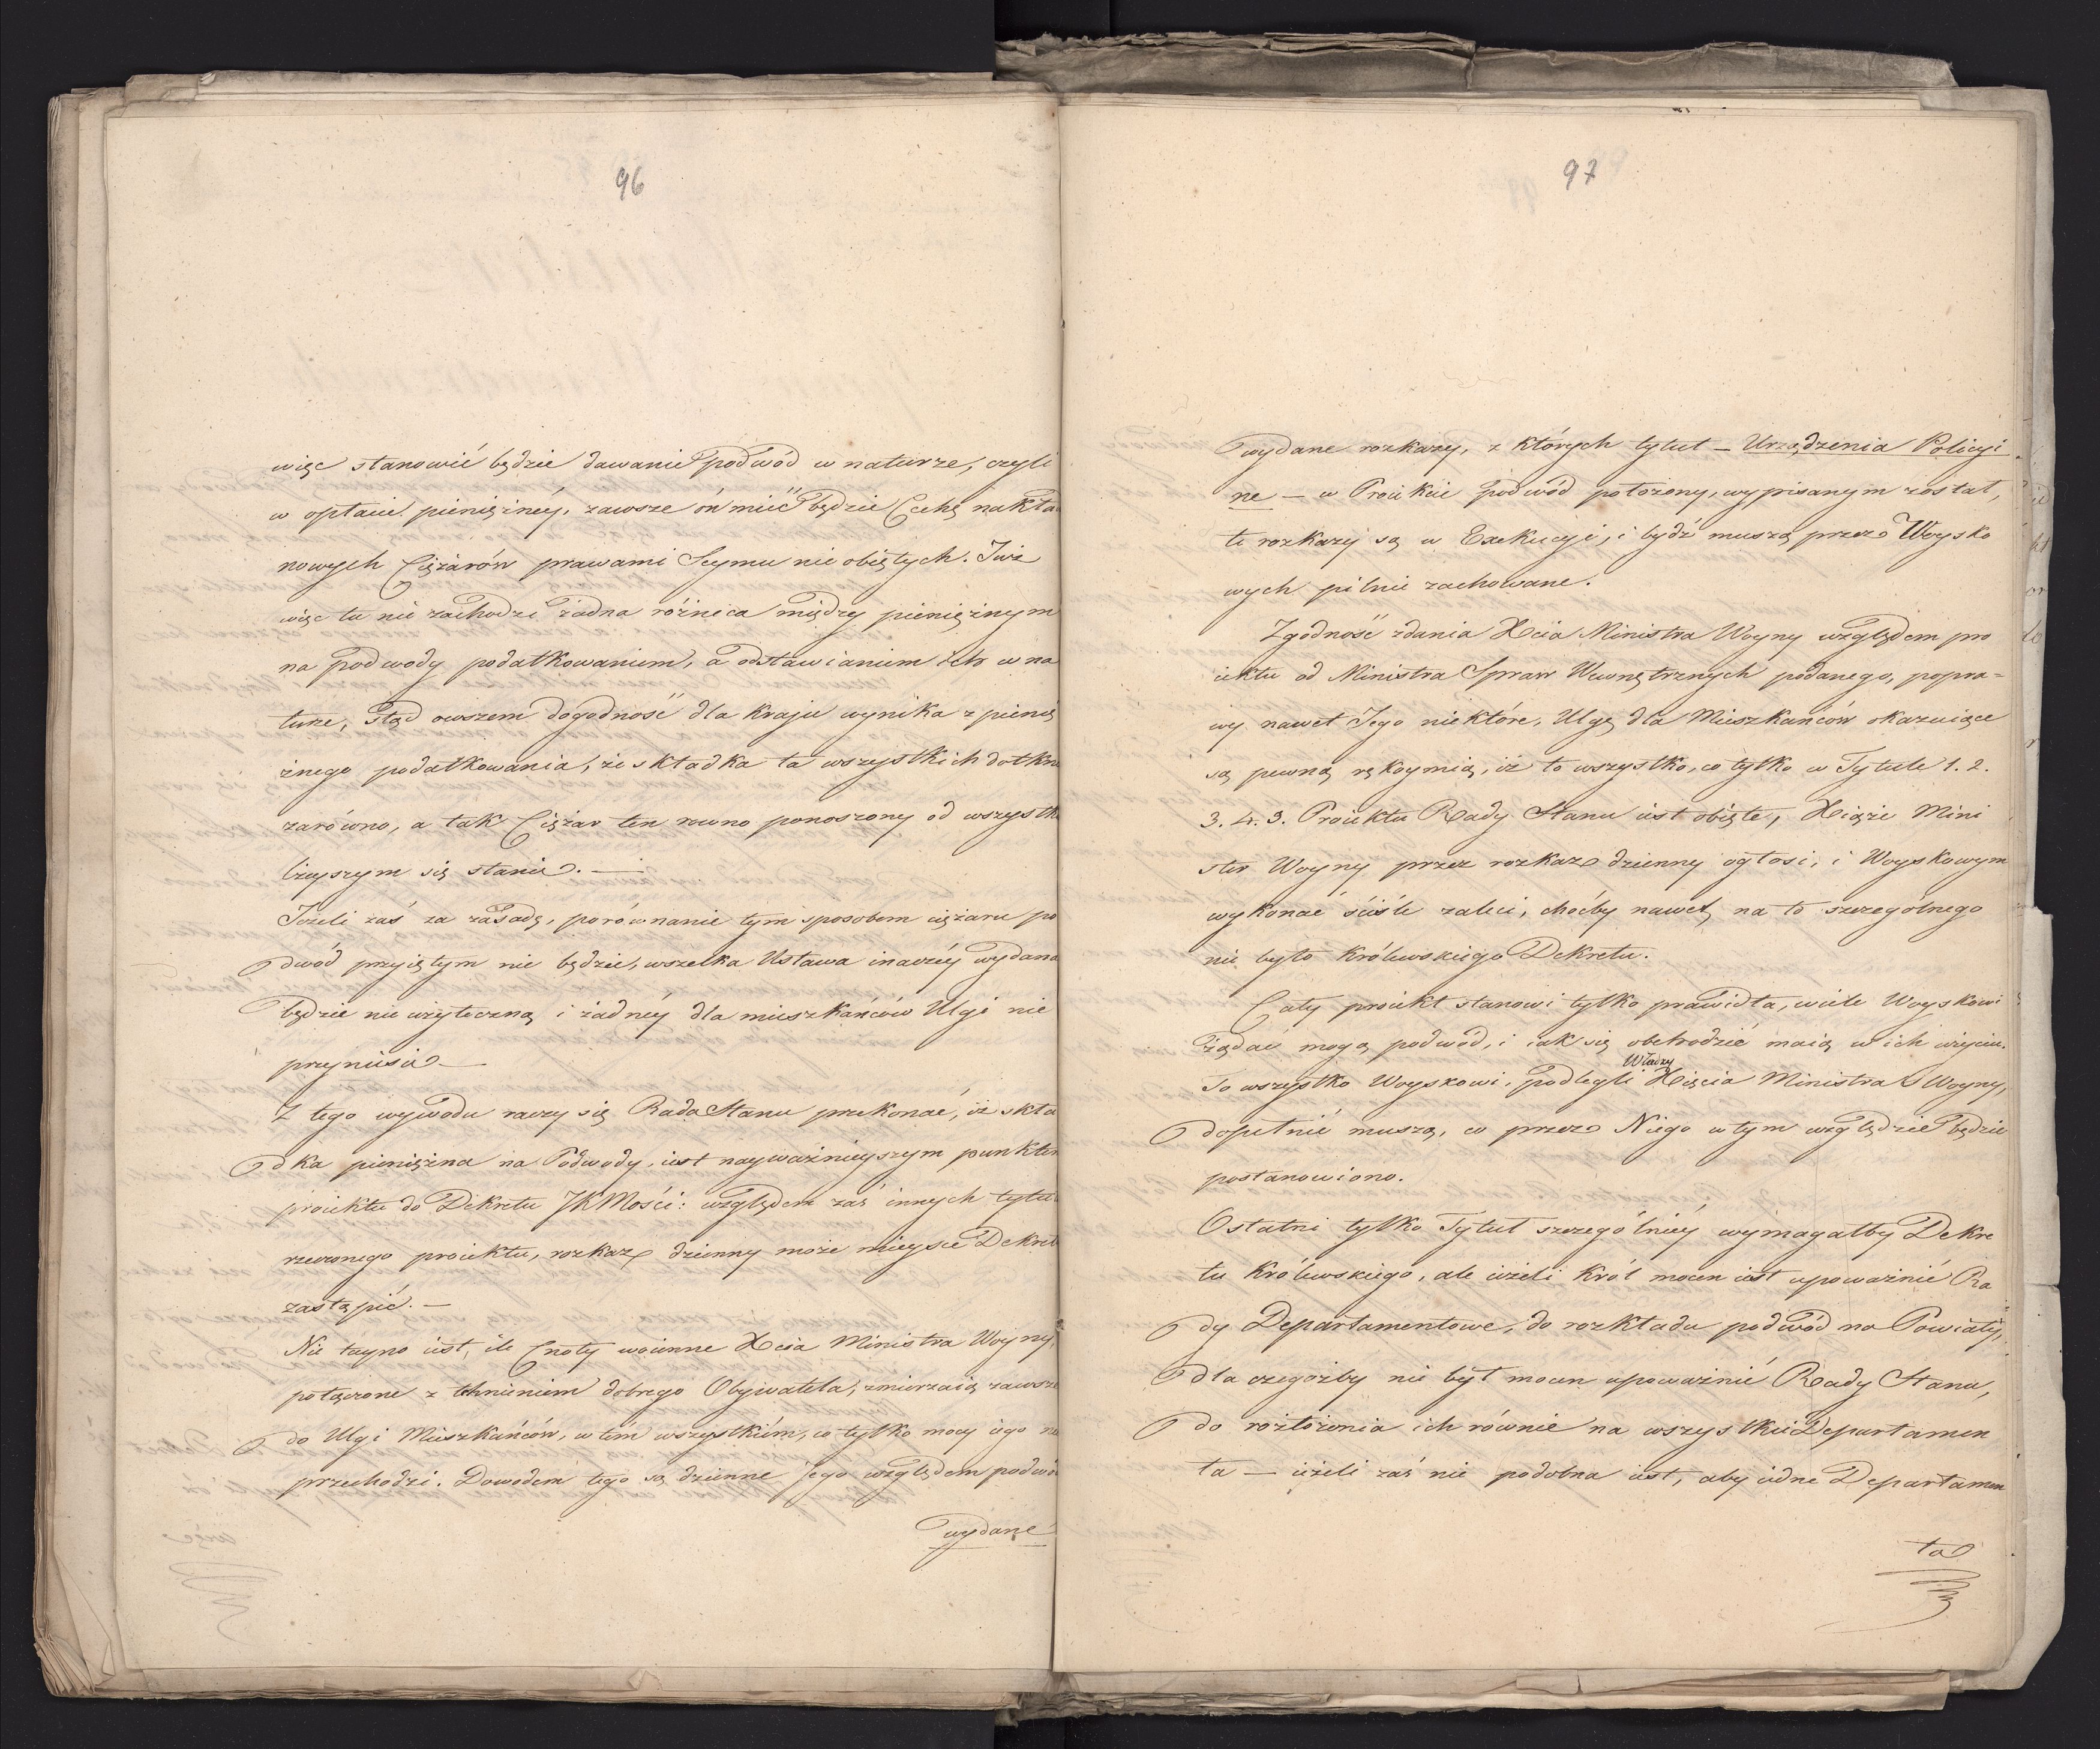 96
więc stanowić będzie dawanie podwód w naturze, czyli
w opłacie pieniężnéy, zawsze ón mieć będzie Cechę nakła
nowych Ciężarów prawami Seymu nie obiętych. Już
więc tu nie zachodzi żadna różnica między pieniężnym
na podwody podatkowaniem, a odstawianiem ich w na
turze, stąd owszem dogodność dla kraju wynika z pienię
żnego podatkowania, że składka ta wszystkich dotknie
zarówno, a tak Ciężar ten rowno ponoszony od wszystk
lżeyszym się stanie. —
Jeżeli zaś za zasadę, porównanie tym sposobem ciężaru po
dwód przyiętym nie będzie, wszelka Ustawa inaczéy wydana
będzie nie użyteczną i żadnéy dla mieszkańców Ulgi nie
przyniesie —
Z tego wywodu raczy się Rada Stanu przekonać, iż skła
dka pieniężna na Podwody, iest nayważnieyszym punktem
proiektu do Dekretu JKMości: względem zaś innych tytu
rzeczonego proiektu, rozkaz dzienny może mieysce Dekre
zastąpić. —
Nie tayno iest, ile Cnoty woienne Xcia Ministra Woyny,
połączone z tchnieniem dobrego Obywatela, zmierzaią zawsze
do Ulgi Mieszkańców, w tém wszystkiém, co tylko mocy iego nie
przechodzi. Dowodem tego są dzienne Jego względem podwód
wydane
97
wydane rozkazy, z których tytuł — Urządzenia Policyi
ne — w Proiekcie podwód położony, wypisanym został,
te rozkazy są w Exekucyi, i bydź muszą przez Woysko
wych pilnie zachowane.
Zgodność zdania Xcia Ministra Woyny względem pro
iektu od Ministra Spraw Wewnętrznych podanego, popra=
wy nawet Jego niektóre, Ulgę dla Mieszkańców okazuiące
są pewną rękoymią, iż to wszystko, co tylko w Tytule 1. 2.
3. 4. 3. Proiektu Rady Stanu iest obięte, Xiąże Mini
ster Woyny przez rozkaz dzienny ogłosi, i Woyskowym
wykonać ściśle zaleci, choćby nawet na to szczególnego
nie było Królewskiego Dekretu.
Cały proiekt stanowi tylko prawidła, wiele Woyskowi
żądać mogą podwód, i iak się obchodzić maią w ich użyciu.
To wszystko Woyskowi, podlegli Władzy Xięcia Ministra Woyny,
dopełnić muszą, co przez Niego w tym względzie będzie
postanowiono.
Ostatni tylko Tytuł szczególniéy wymagałby Dekre
tu Królewskiego, ale ieżeli Król mocen iest upoważnić Ra
dy Departamentowe, do rozkładu podwód na Powiaty,
dla czegożby nie był mocen upoważnić Rady Stanu,
do rozłożenia ich równie na wszystkie Departamen
ta — ieżeli zaś nie podobna iest, aby iedne Departamen
ta